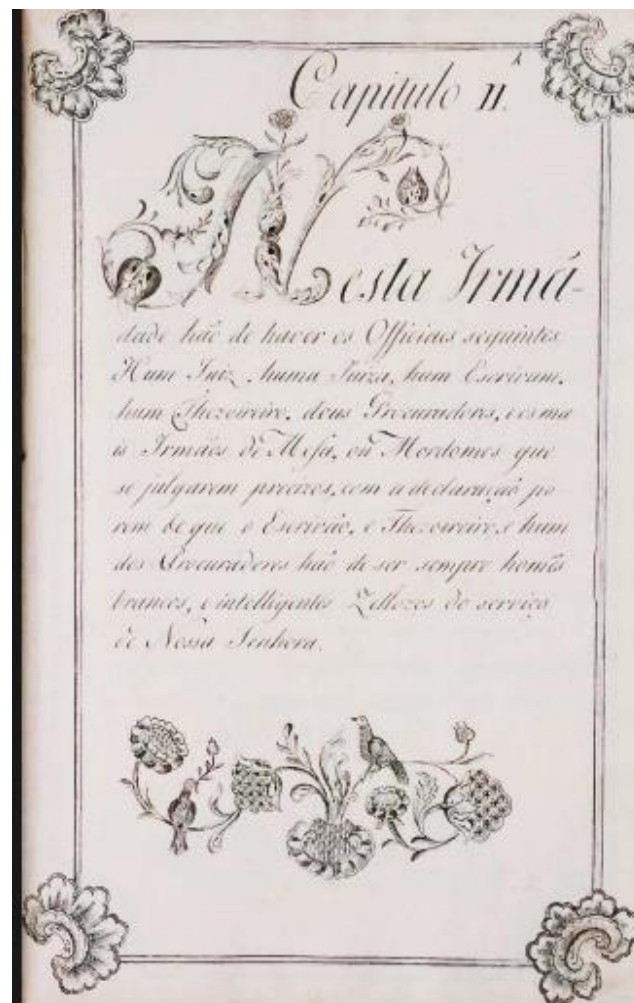 Capitulo II.
Nesta Irmã-
dade hão de haver os Officiaes seguintes
Hum Juiz, huma Juiza, hum Escrivam,
hum Thezoireiro, dous Procuradores, e os ma
is Irmãos de Mesa, ou Mordomos que
se julgarem precizos, com a declaração po
rem de que o Escrivão, e Thezoureiro, e hum
dos Procuradores hão de ser sempre homẽs
brancos, e intelligentes Zellozos do serviço
de Nossa Senhora.